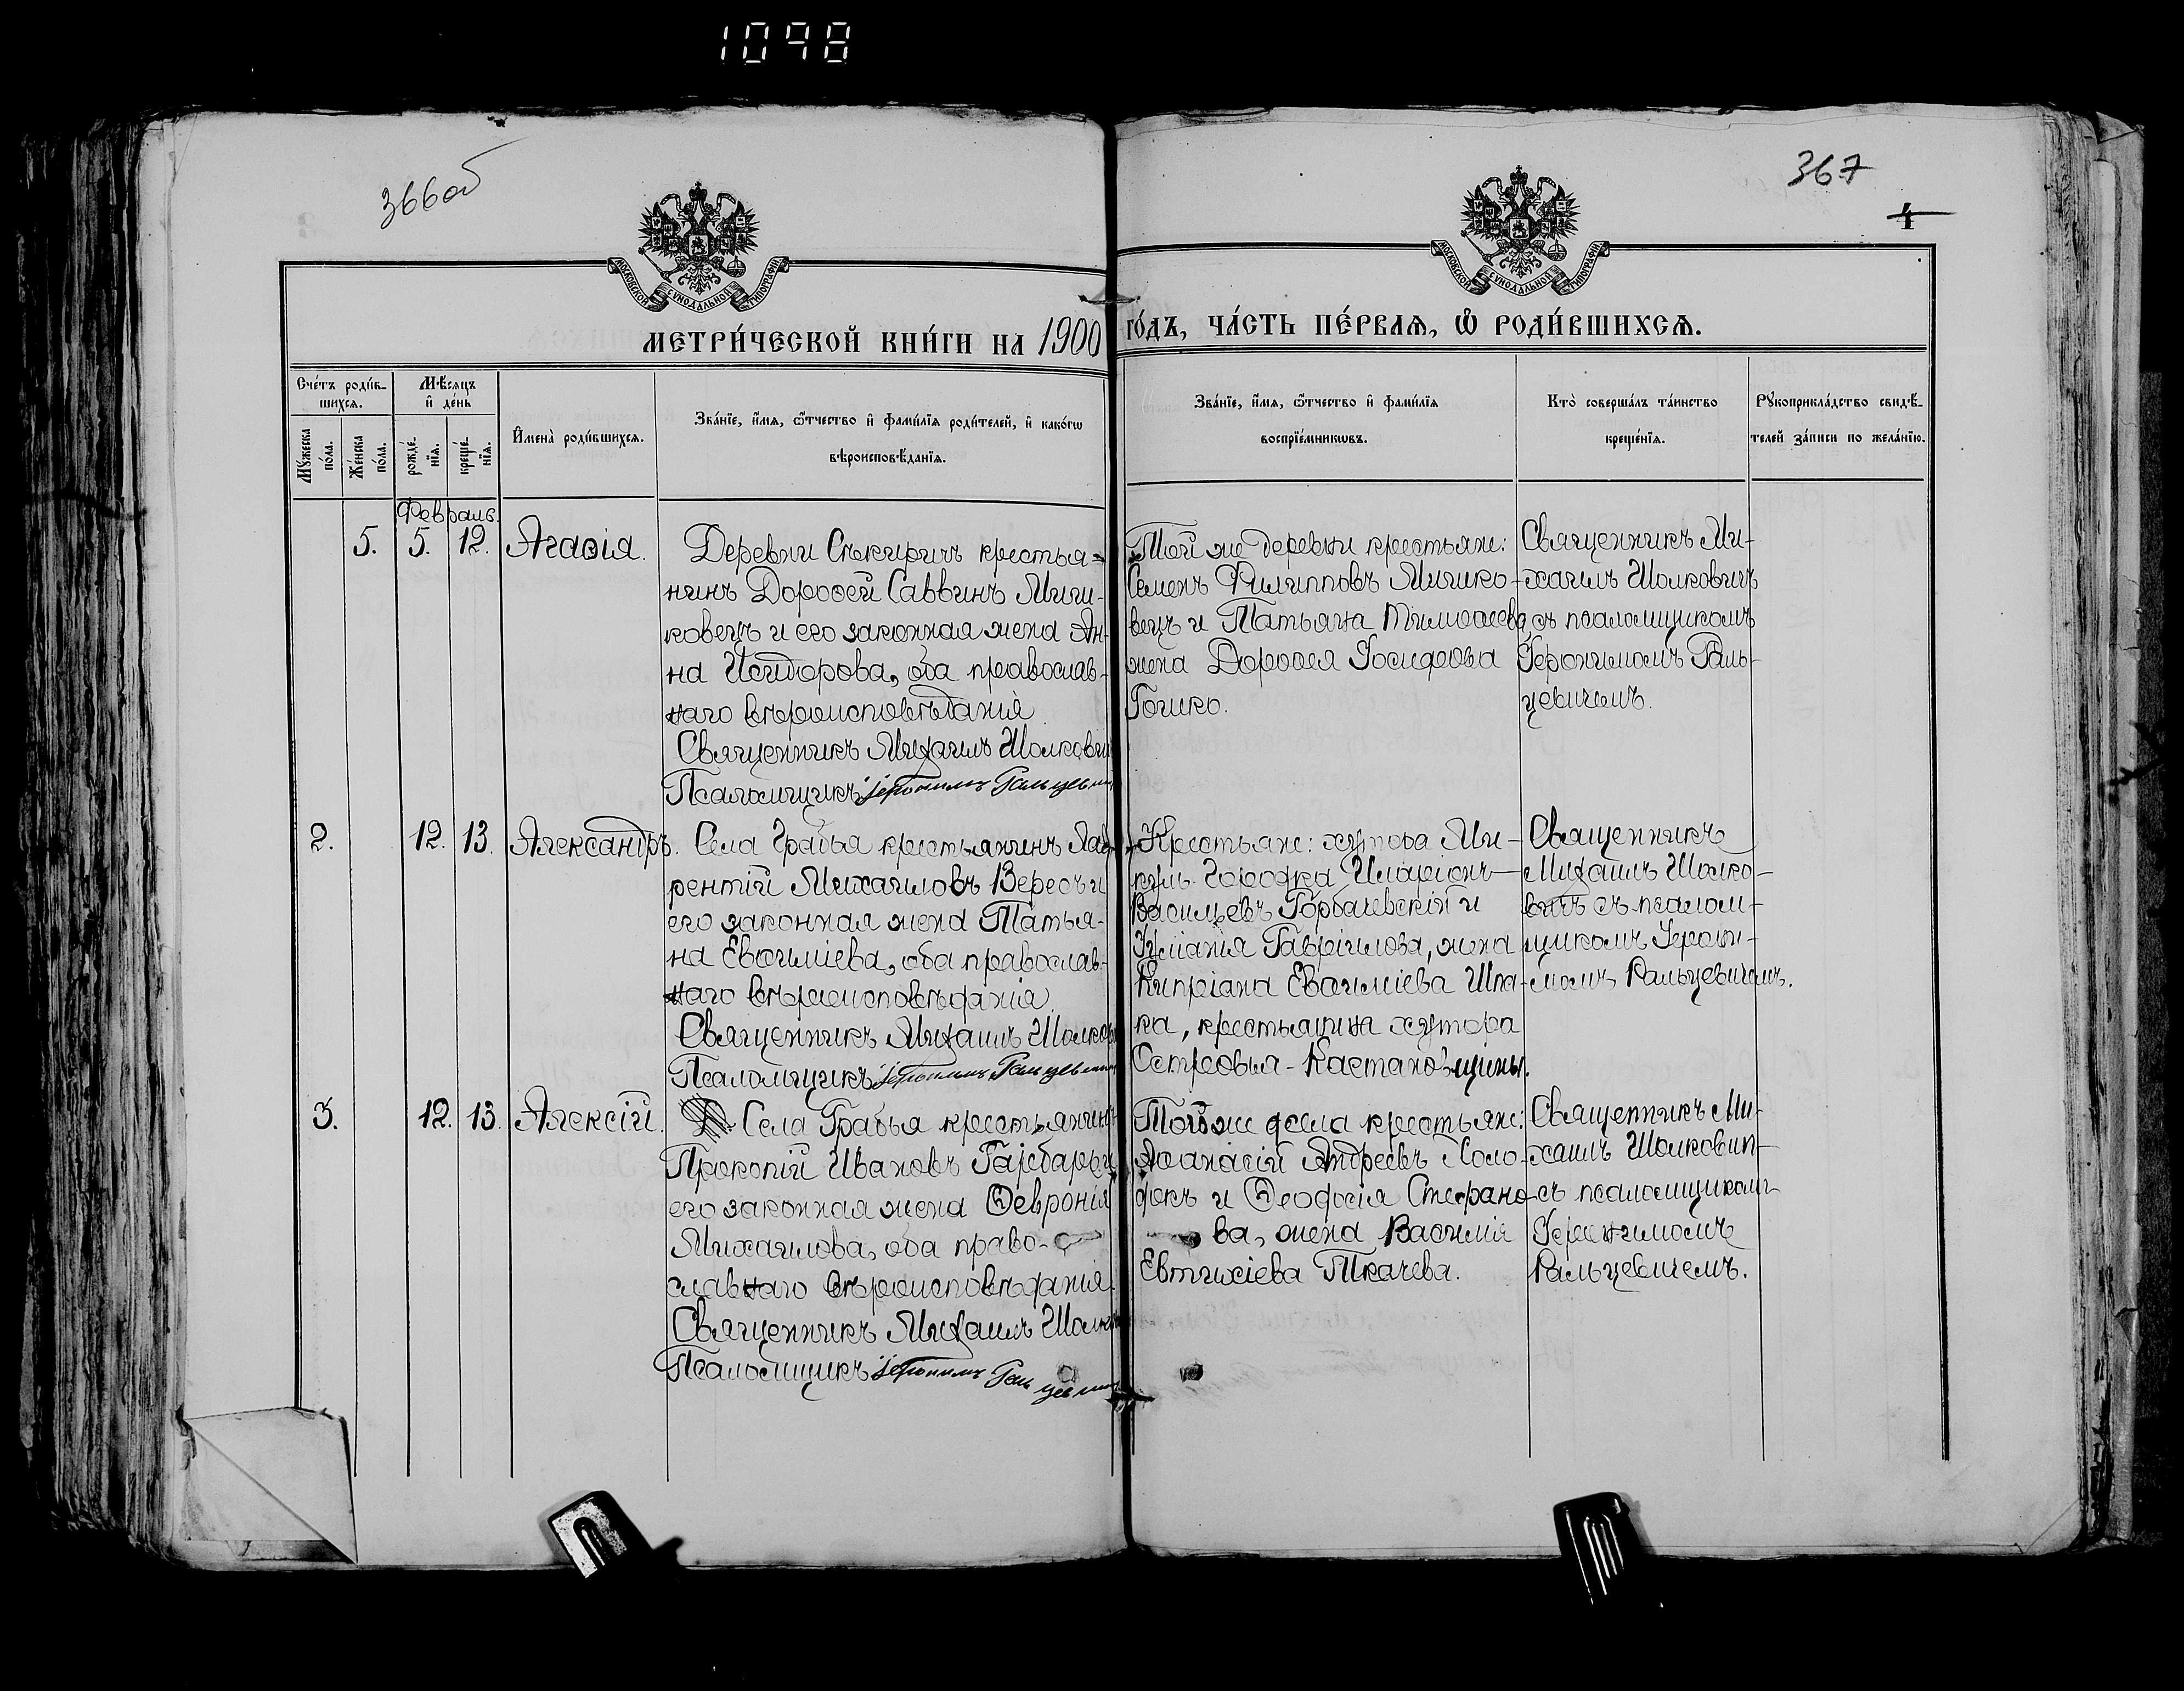 1098
366об
367
4
МОСКОВСКОЙ СУНОДАЛЬНОЙ ТИПОГРАФІИ
МОСКОВСКОЙ СУНОДАЛЬНОЙ ТИПОГРАФІИ
МЕТРИ́ЧЕСКОЙ КНИ́ГИ НА 1900 ГО́ДЪ, ЧА́СТЬ ПЕ́РВАѦ, Ѿ РОДИ́ВШИХСѦ.
Сче́тъ роди́в-
шихся.
Мѣ́сяцъ
и҆ де́нь
Мꙋ́жеска
по́ла.
Же́нска
по́ла.
рожде́-
нїя.
креще́-
нїя.
И҆мена̀ роди́вшихся.
Зва́нїе, и҆́мя, ѻ҆́тчество и҆ фами́лїя роди́телей, и҆ како́гѡ
вѣроисповѣ́данїя.
Зва́нїе, и҆́мя, ѻ҆́тчество и҆ фами́лїя
воспрїе́мникѡвъ.
Кто̀ соверша́лъ та́инство
креще́нїя.
Рꙋкоприкла́дство свидѣ́-
телей за́писи по жела́нїю.
Февраль.
5. 5. 12. Агаѳія.
Деревни Сѣкиричъ крестья-
нинъ Дороѳей Саввинъ Мити-
ковецъ и его законная жена Ан-
на Исидорова, оба православ-
наго вѣроисповѣданія.
Священникъ Михаилъ Шолкович
Псаломщикъ Іеронимъ Ральцевич
Той же деревни крестьяне:
Семенъ Филипповъ
вецъ и Татьяна Тимоѳеева
жена Дороѳея Іосифова
Гогико.
Священникъ Ми-
хаилъ Шолковичъ
съ псаломщикомъ
Іеронимомъ Раль-
цевичемъ.
2. 12. 13. Александръ.
Села Грабья крестьянинъ Лав-
рентій Михаиловъ Вересъ и
его законная жена Татья-
на Евѳиміева, оба православ-
наго вѣроисповѣданія.
Священникъ Михаилъ Шолков
Псаломщикъ Іеронимъ Ральцевич
Крестьяне: хутора Ми-
куль-Городка Иларіонъ
Васильевъ Горбачевскій и
Гавріилова, жена
Кипріана Евѳиміева Шпа-
ка, крестьянина хутора
Священникъ
Михаилъ Шолко-
вичъ съ псалом-
щикомъ Іерони-
момъ Ральцевичемъ.
3. 12. 13. Алексій.
Села Грабья крестьянинъ
Прокопій Ивановъ Гайбаръ и
его законная жена Ѳевронія
Михаилова, оба право-
славнаго вѣроисповѣданія.
Священникъ Михаилъ Шолков
Псаломщикъ Іеронимъ Ральцевич
Того же села крестьяне:
Аѳанасій Андреевъ Соло-
и Ѳеодосія Стефано-
ва, жена Василія
Евтихіева Ткачева.
Священникъ Ми-
хаилъ Шолкович
съ псаломщикомъ
Іеронимомъ
Ральцевичемъ.